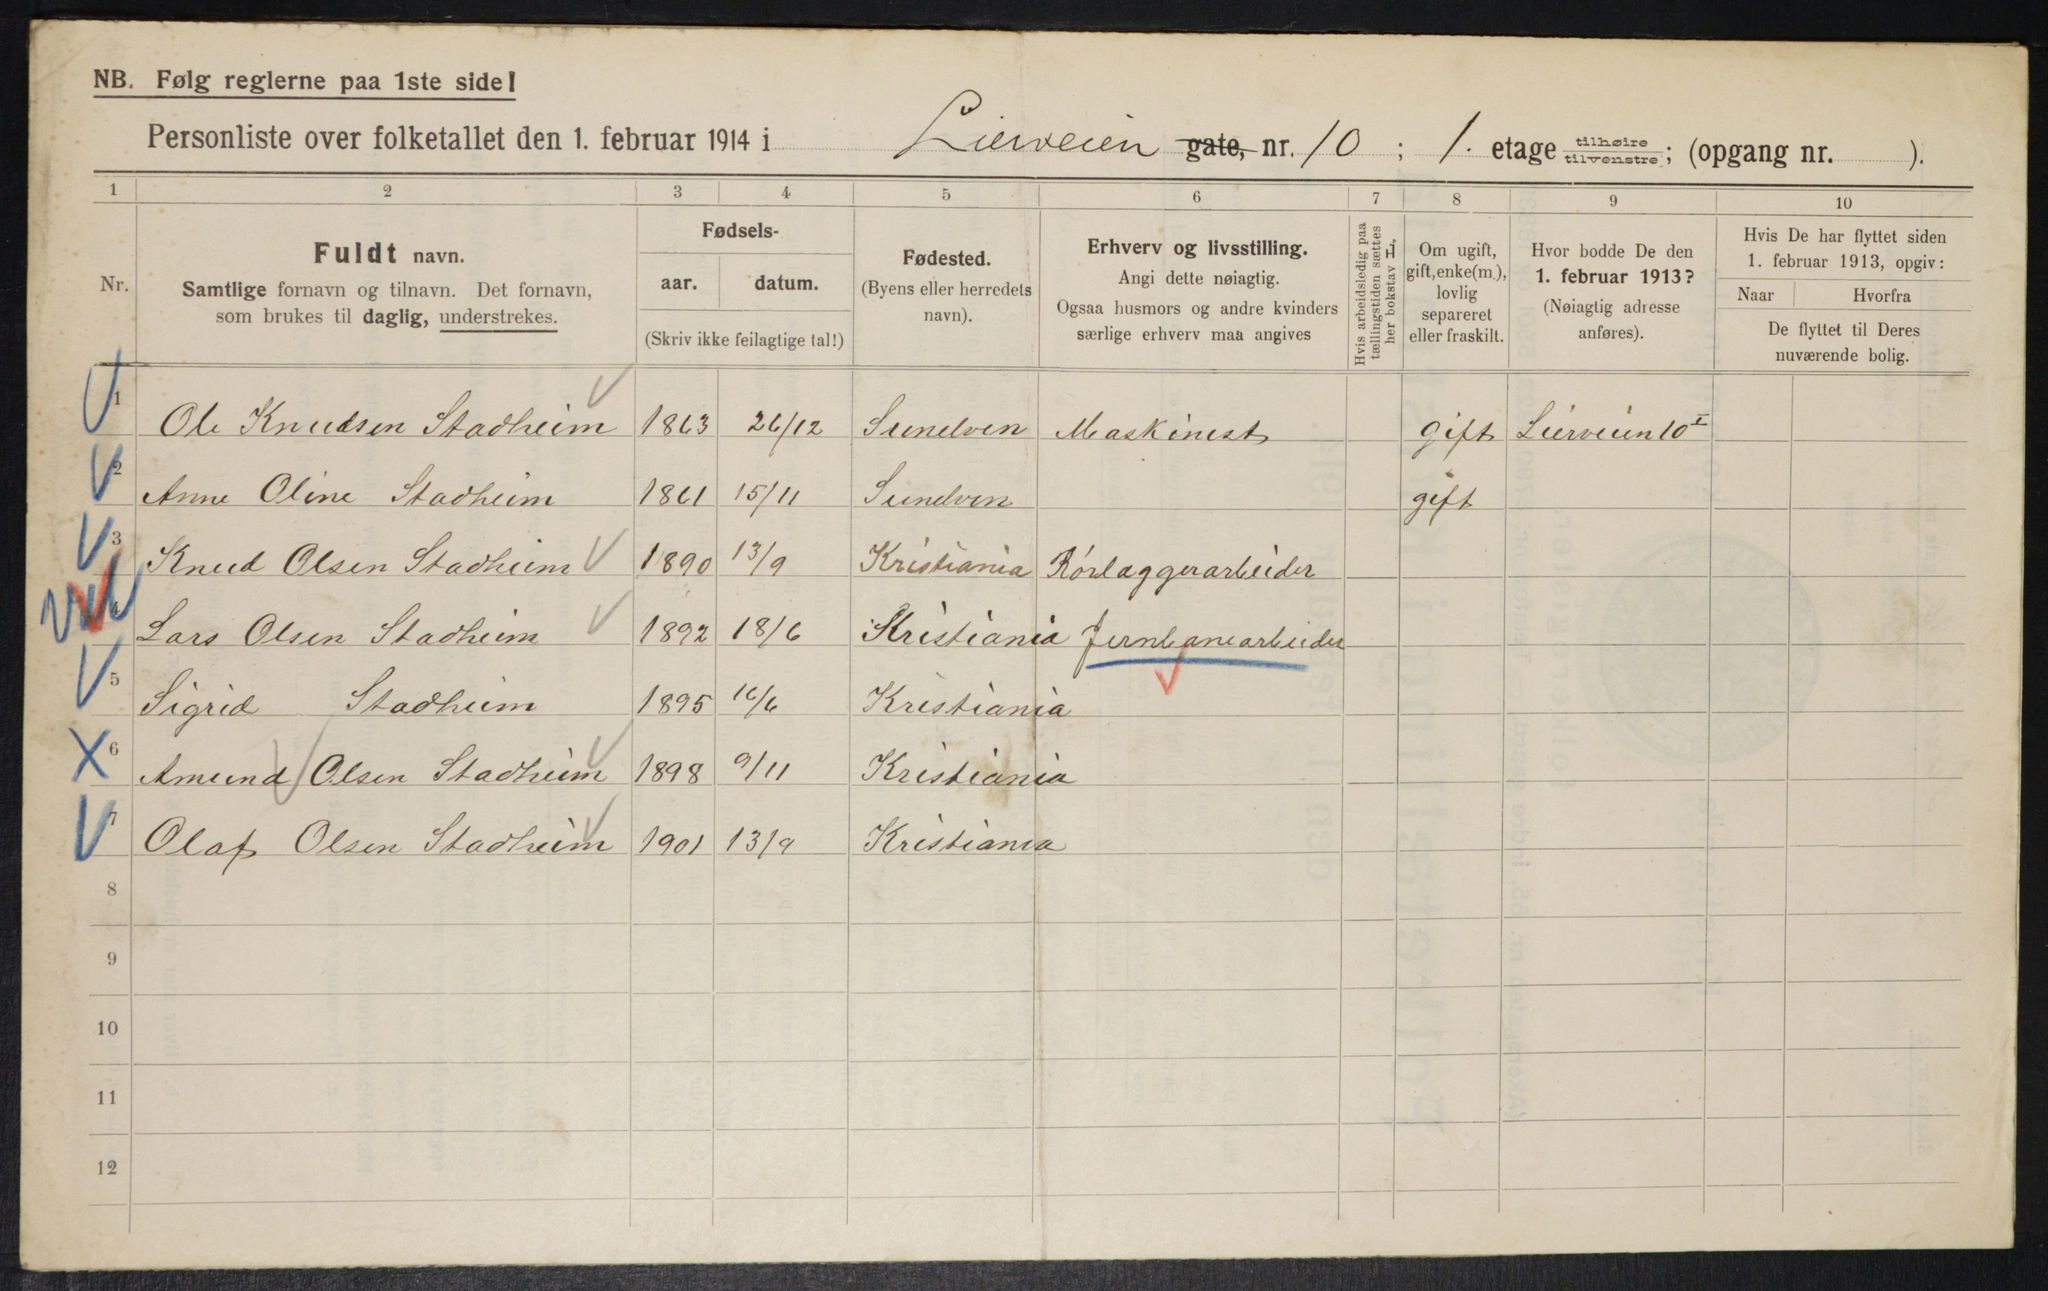 NB. Følg reglerne paa 1ste side!
Personliste over folketallet den 1. februar 1914 i Lierveien gate, nr. 10 ; 1. etage tilhøire tilvenstre; (opgang nr. ).
1 2 3 4 5 6 7 8 9 10
Nr.
Fuldt navn.
Samtlige fornavn og tilnavn. Det fornavn,
som brukes til daglig, understrekes.
Fødsels-
aar. datum.
(Skriv ikke feilagtige tal!)
Fødested.
(Byens eller herredets
navn).
Erhverv og livsstilling.
Angi dette nøiagtig.
Ogsaa husmors og andre kvinders
særlige erhverv maa angives
Hvis arbeidsledig paa
tællingstiden sættes
her bokstav L.
Om ugift,
gift, enke(m.),
lovlig
separeret
eller fraskilt.
Hvor bodde De den
1. februar 1913?
(Nøiagtig adresse
anføres).
Hvis De har flyttet siden
1. februar 1913, opgiv:
Naar Hvorfra
De flyttet til Deres
nuværende bolig.
1 Ole Knudsen Stadheim 1863 26/12 Sunelven Maskinist gift Lierveien 10 I
2 Anne Oline Stadheim 1861 15/11 Sunelven gift
3 Knud Olsen Stadheim 1890 13/9 Kristiania Rörlæggerarbeider
4 Lars Olsen Stadheim 1892 18/6 Kristiania Jernbanearbeider
5 Sigrid Stadheim 1895 16/6 Kristiania
6 Amund Olsen Stadheim 1898 9/11 Kristiania
7 Olaf Olsen Stadheim 1901 13/9 Kristiania
8
9
10
11
12